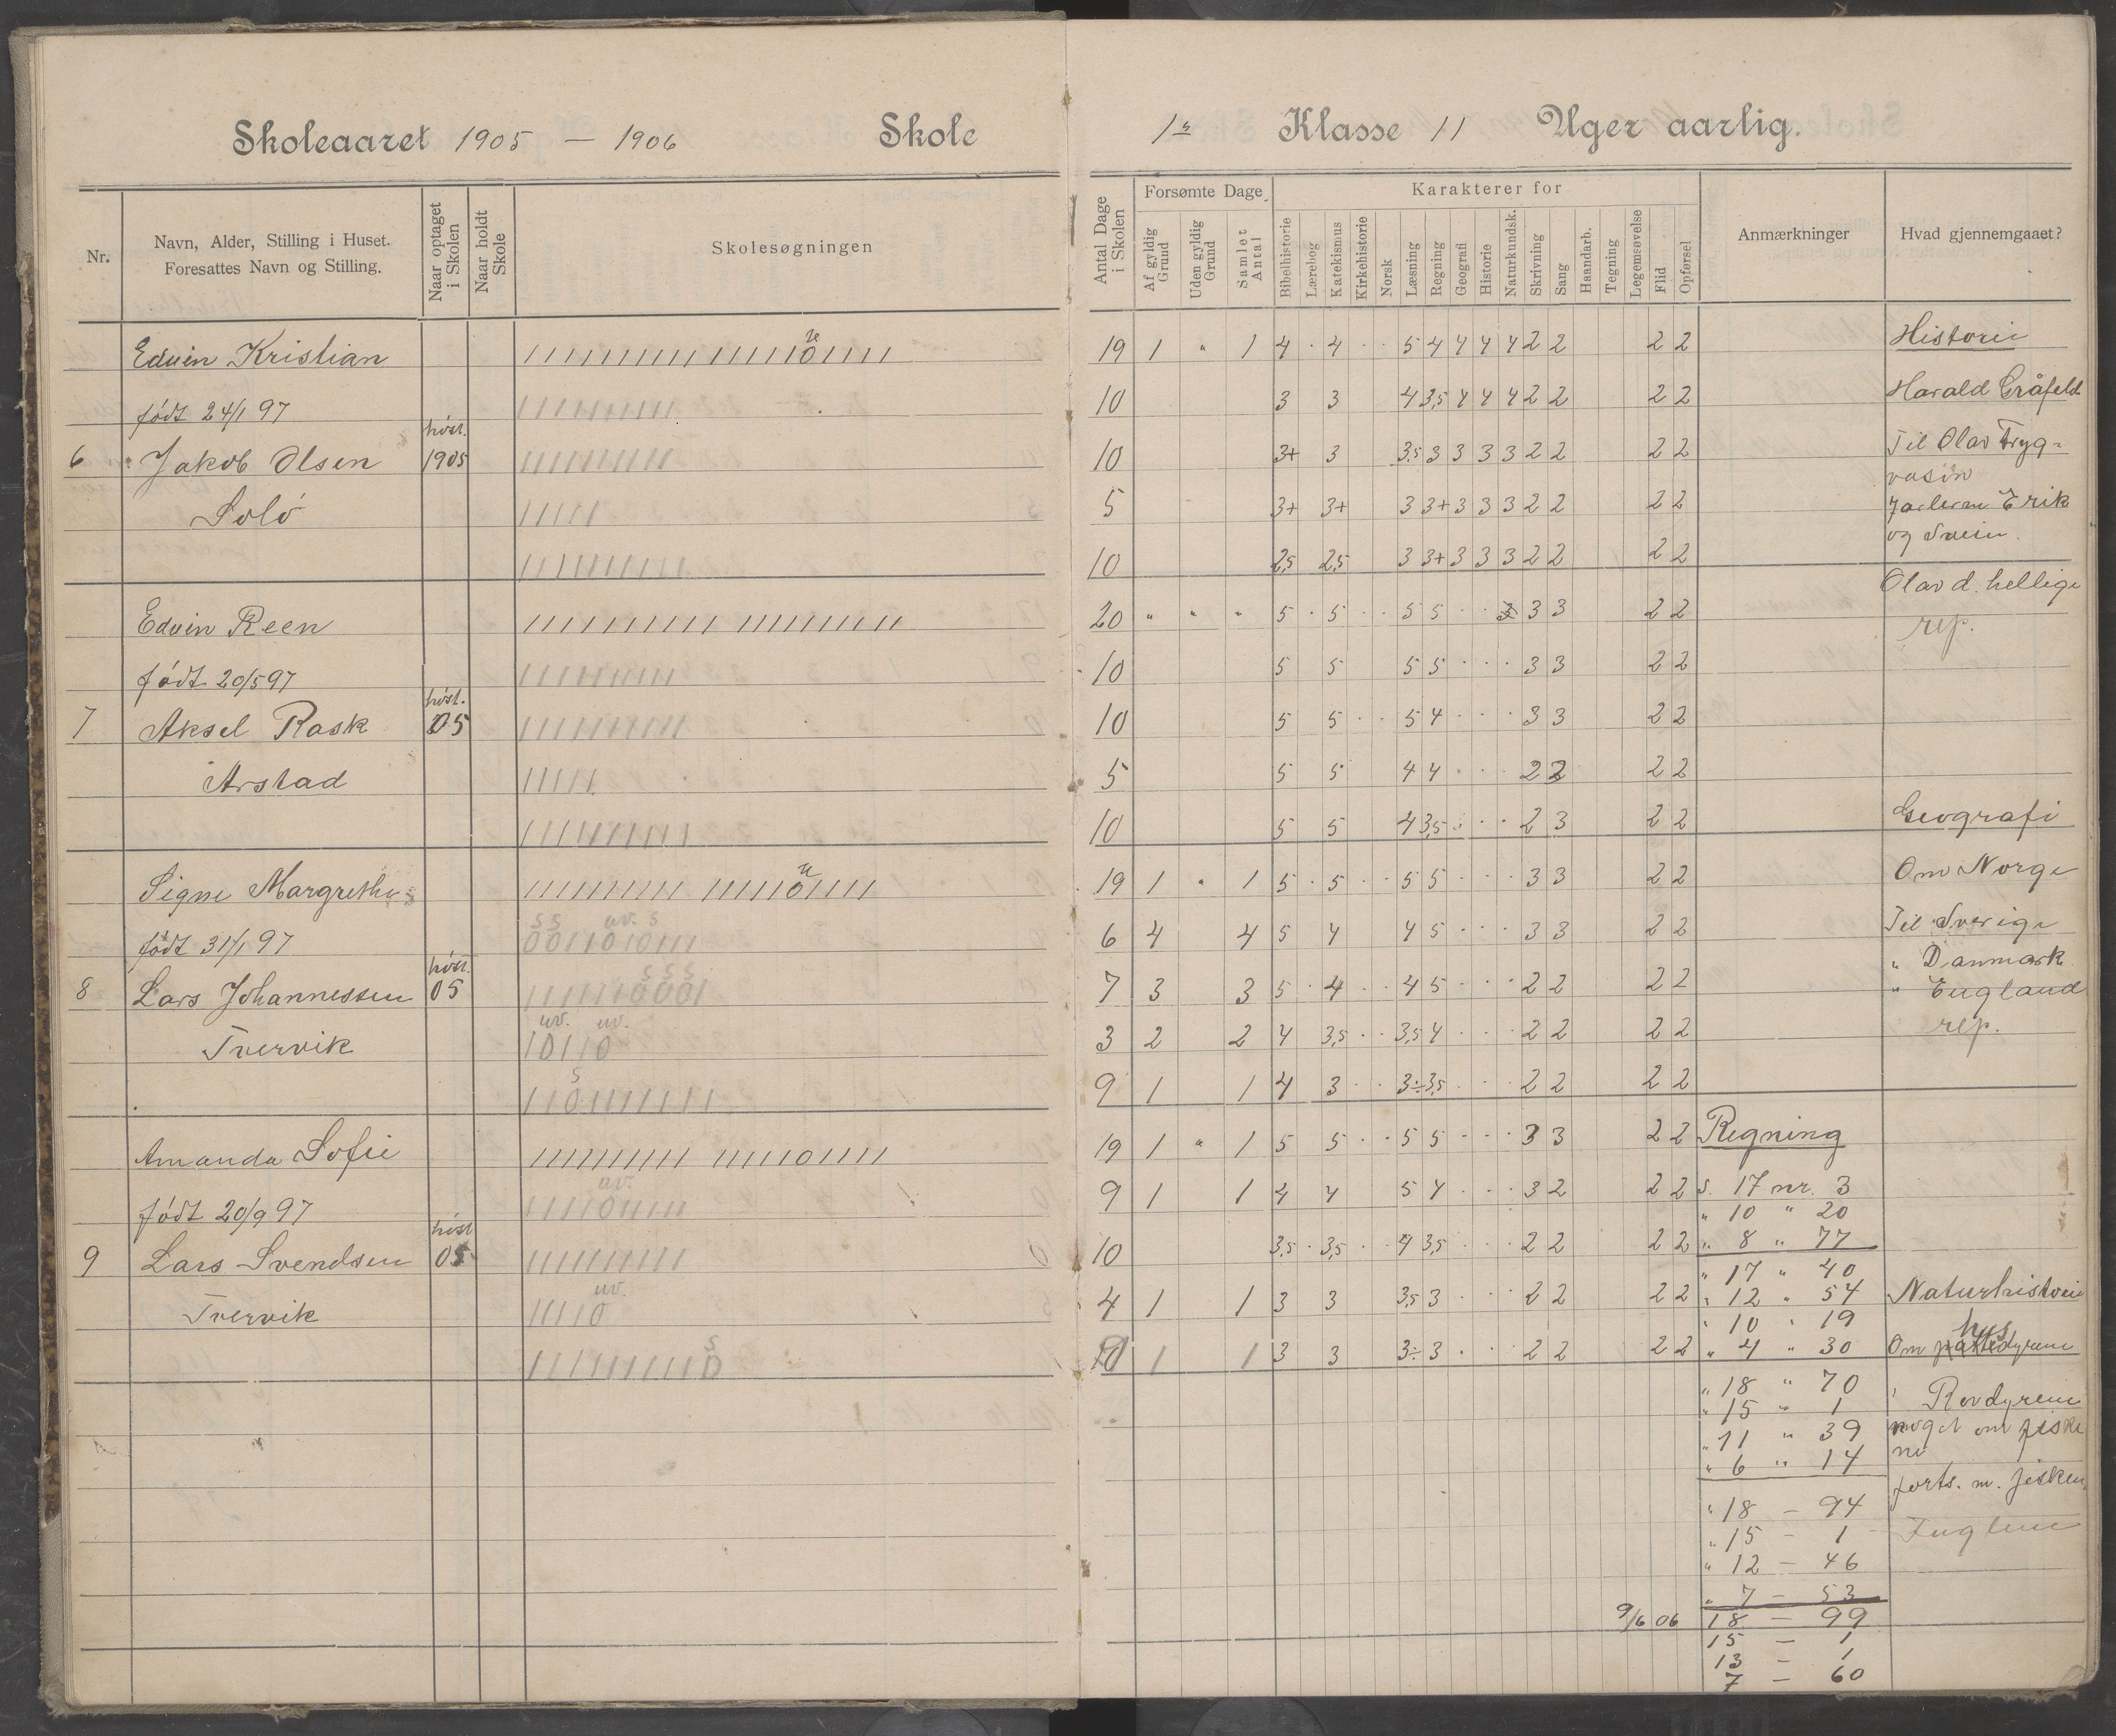 Skoleaaret 1905 — 1906 Skole
1ste Klasse 11 Uger aarlig.
Nr.
Navn, Alder, Stilling i Huset.
Foresattes Navn og Stilling.
Naar optaget
i Skolen
Naar holdt
Skole
Skolesøgningen
Antal Dage
i Skolen
Forsømte Dage
Af gyldig
Grund
Uden gyldig
Grund
Samlet
Antal
Karakterer for
Bibelhistorie
Lærebog
Katekismus
Kirkehistorie
Norsk
Læsning
Regning
Geografi
Historie
Naturkundsk.
Skrivning
Sang
Haandarb.
Tegning
Legemsøvelse
Flid
Opførsel
Anmærkninger
Hvad gjennemgaaet?
Edvin Kristian
født 24/1 97
høst.
6 Jakob Olsen 1905
Solø
19 1 " 1 4 · 4 · · 5 4 4 4 4 2 2 2 2
10 3 3 4 3,5 4 4 4 2 2 2 2
10 3+ 3 3,5 3 3 3 3 2 2 2 2
5 3+ 3+ 3 3+ 3 3 3 2 2 2 2
10 2,5 2,5 3 3+ 3 3 3 2 2 2 2
Edvin Reen
født 20/5 97
høst.
7 Aksel Rask 05
Arstad
20 " " " 5 · 5 · · 5 5 · · 3 3 3 2 2
10 5 5 5 5 · · · 3 3 2 2
10 5 5 · · 5 4 · · · 3 3 2 2
5 5 5 4 4 · · · 2 2 2 2
10 5 5 4 3,5 · · · 2 3 2 2
Signe Margrethe
født 31/1 97
høst.
8 Lars Johannessen 05
Tvervik
19 1 " 1 5 · 5 · · 5 5 · · · 3 3 2 2
6 4 4 5 4 4 5 · · · 3 3 2 2
7 3 3 5 · 4 · · 4 5 · · · 2 2 2 2
3 2 2 4 3,5 · · 3,5 4 · · · 2 2 2 2
9 1 1 4 3 · · 3÷ 3,5 · · · 2 2 2 2
Amanda Sofie
født 20/9 97
høst
9 Lars Svendsen 05
Tvervik
19 1 " 1 5 5 · · 5 5 · · · 3 3 2 2
9 1 1 4 4 5 4 · · · 3 2 2 2
10 3,5 · 3,5 · · 4 3,5 · · · 2 2 2 2
4 1 1 3 3 3,5 3 · · · 2 2 2 2
1 1 3 3 3÷ 3 · · · 2 2 2 2
Regning
S. 17 nr. 3
" 10 " 20
" 8 " 77
" 17 " 40
" 12 " 54
" 10 " 19
" 4 " 30
" 18 " 70
" 15 " 1
" 11 " 39
" 6 " 14
" 18 — 94
" 15 — 1
" 12 — 46
" 7 — 53
9/6 06 18 — 99
15 — 1
13 — 1
7 — 60
Historie
Harald Gråfeld
Til Olav Tryg=
vasön
Jarlerne Erik
og Svein.
Olav d. hellige
rep.
Geografi
Om Norge
Til Sverige
" Danmark
" England
rep.
Naturhistorie
hus
Om pattedyrene
" Rovdyrene
noget om fiske
ne
forts. m. fisken
Fuglene